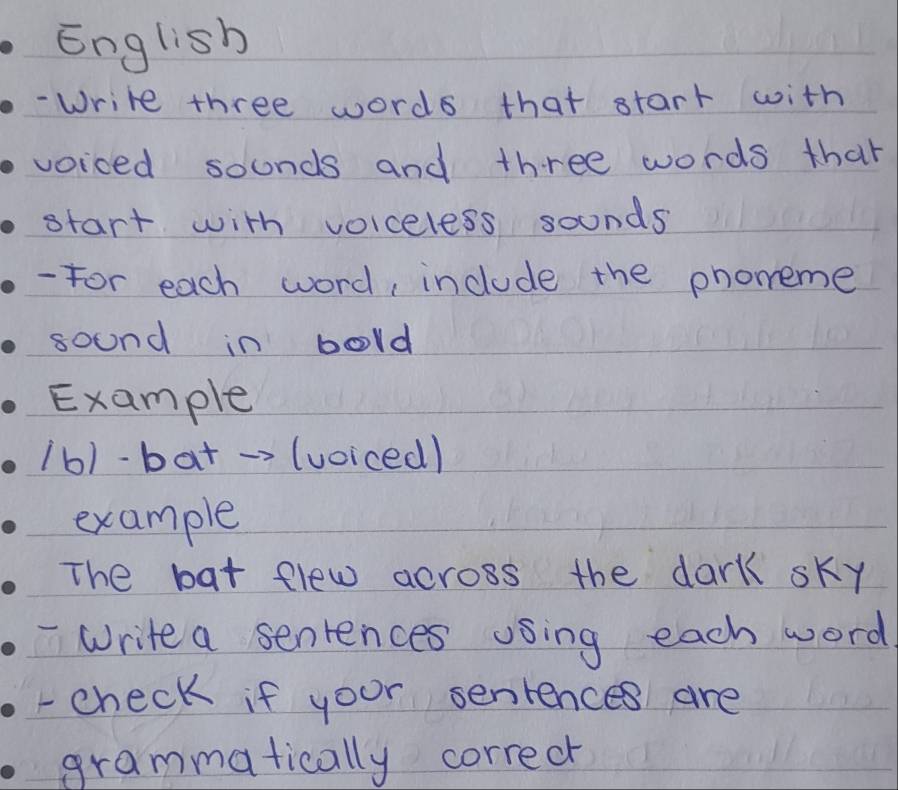 English
- Write three words that start with
voiced sounds and three words that
start with voiceless sounds
- For each word, include the phoneme
sound in bold
Example
/b/ - bat → (voiced)
example
The bat flew across the dark sky
- Write a sentences using each word.
- check if your sentences are
grammatically correct